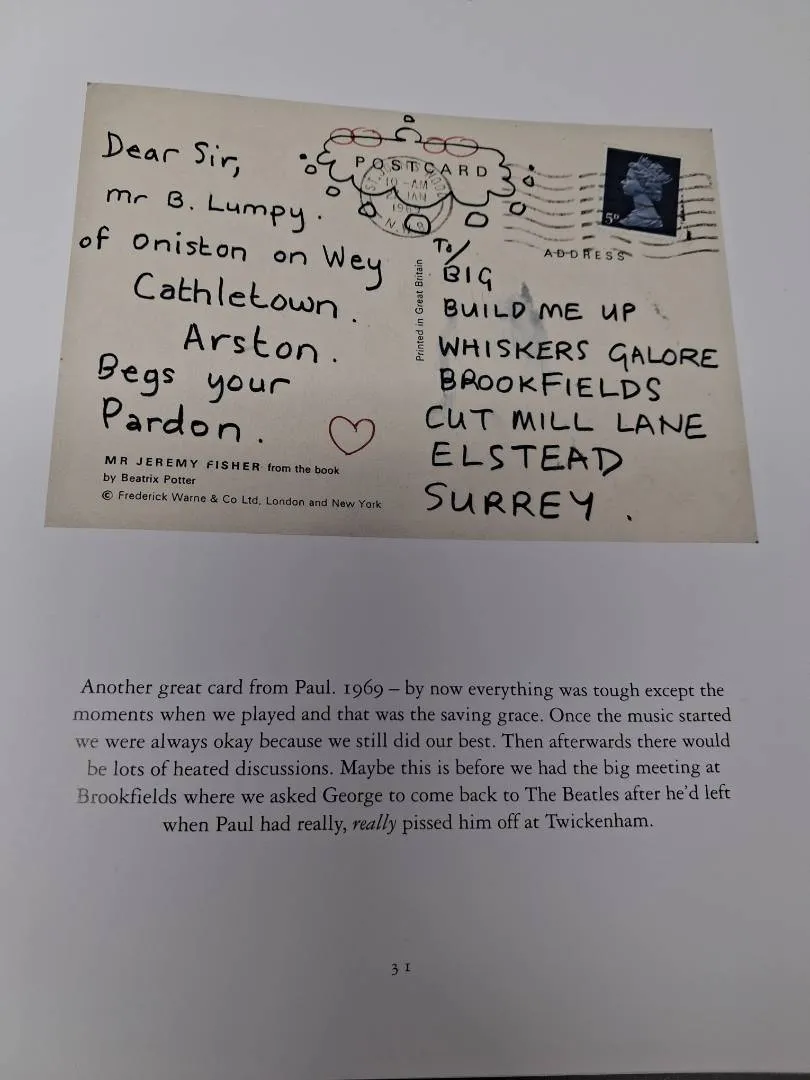 POSTCARD
Dear Sir,
mr B. Lumpy.
of Oniston on Wey
Cathletown.
Arston.
Begs your
Pardon.
MR JEREMY FISHER from the book
by Beatrix Potter
© Frederick Warne & Co Ltd, London and New York
Printed in Great Britain
10 -AM
JAN
N.W.
5D
ADDRESS
To/
BIG
BUILD ME UP
WHISKERS GALORE
BROOKFIELDS
CUT MILL LANE
ELSTEAD
SURREY.
Another great card from Paul. 1969 – by now everything was tough except the
moments when we played and that was the saving grace. Once the music started
we were always okay because we still did our best. Then afterwards there would
be lots of heated discussions. Maybe this is before we had the big meeting at
Brookfields where we asked George to come back to The Beatles after he'd left
when Paul had really, really pissed him off at Twickenham.
31